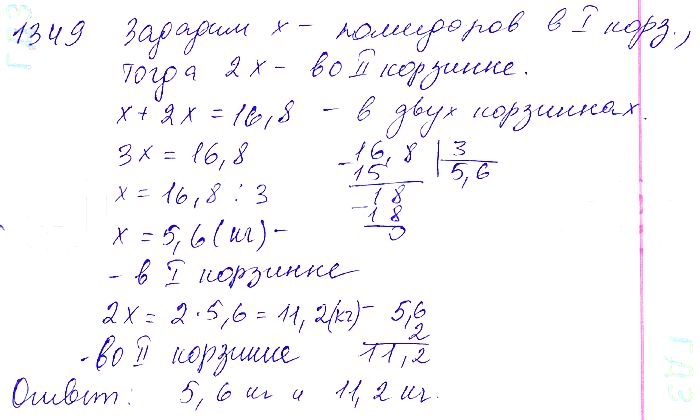 1349 Зададим x - помидоров в I корз.,
тогда 2x - во II корзинке.
x + 2x = 16,8 - в двух корзинках.
3x = 16,8
x = 16,8 : 3
x = 5,6 (кг) -
- в I корзинке
16,8 | 3
15 5,6
- 18
18
0
2x = 2 · 5,6 = 11,2 (кг) -
- во II корзинке
5,6
2
11,2
Ответ: 5,6 кг и 11,2 кг.